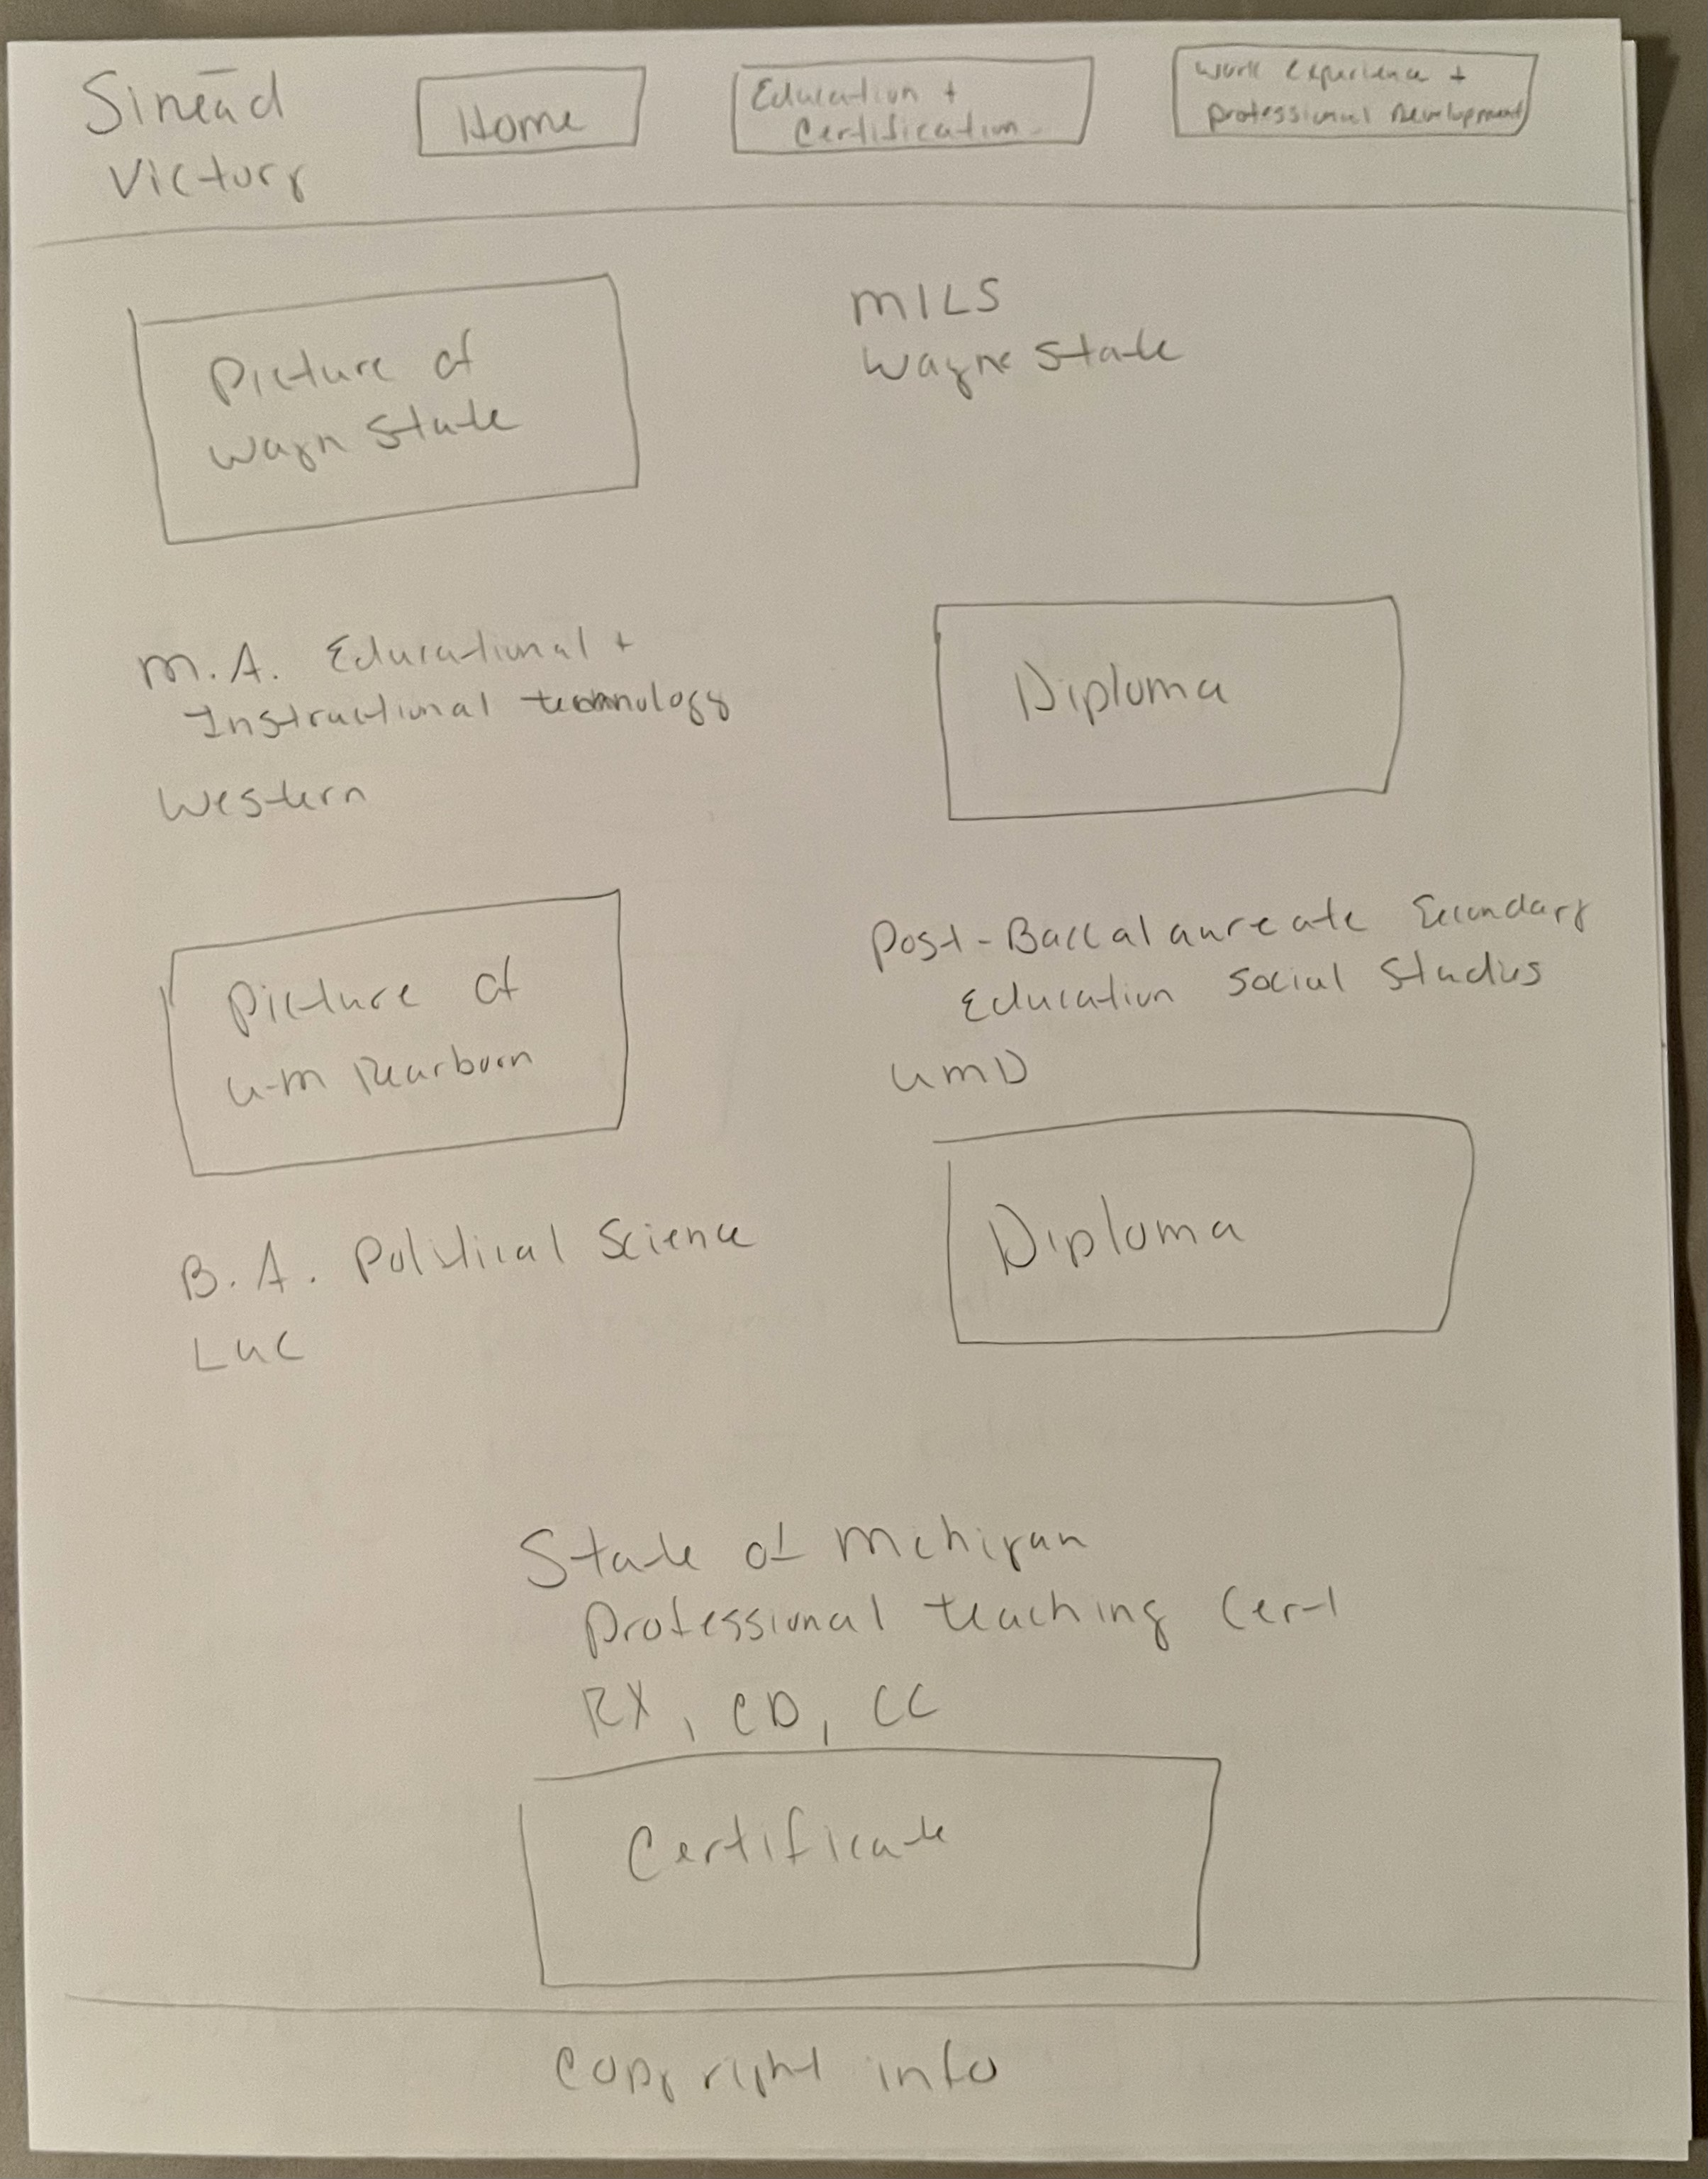 Sinéad
Victory
Home
Education +
Certification
Work Experience +
Professional Development
Picture of
Wayn State
MILS
Wayne State
M.A. Educational +
Instructional technology
Western
Diploma
Picture of
U-M Dearborn
Post-Baccalaureate Secondary
Education Social Studies
UMD
B.A. Political Science
LUC
Diploma
State of Michigan
Professional teaching Cert
RX, CD, CC
Certificate
Copyright info